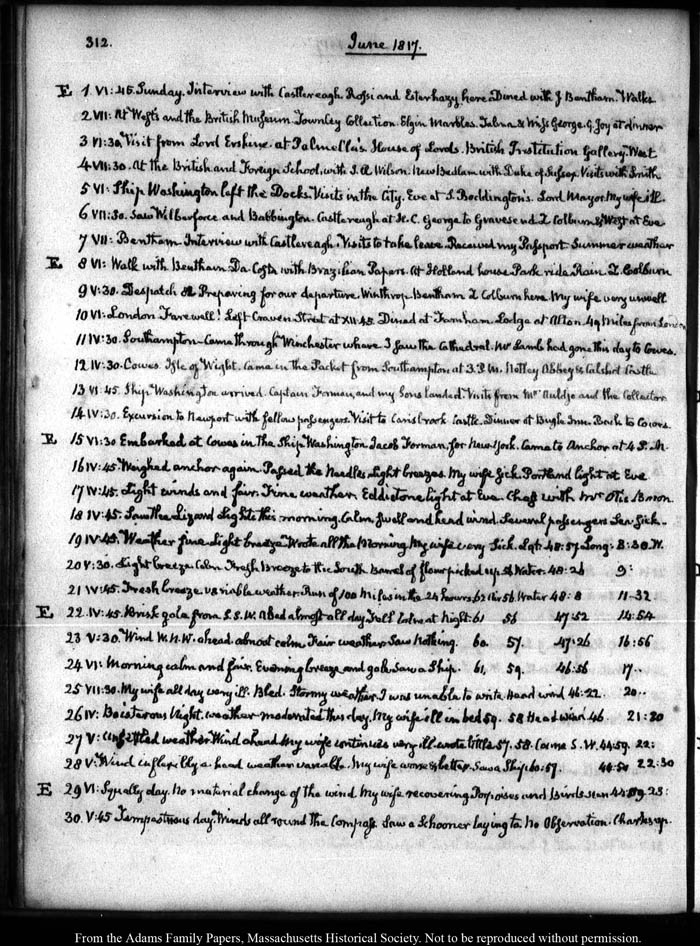 312.
June 1817.
E 1 VI:45. Sunday. Interview with Castlereagh. Rossi and Esterhazy here. Dined with J Bentham. Walks
2 VII: At West's and the British Museum. Townley Collection. Elgin Marbles. Talma & Wife George. G. Joy at dinner
3 VI:30. Visit from Lord Erskine. at Palmella's. House of Lords. British Institution Gallery. West
4 VII:30. At the British and Foreign School, with J. A. Wilson. New Bedlam with Duke of Sussex. Visits with Smith
5 VI: Ship Washington left the Docks. Visits in the City. Eve at S. Boddington's. Lord Mayor. My wife ill.
6 VII:30. Saw Wilberforce and Babbington. Castlereagh at H. C. George to Gravesend. Z Colburn & West at Eve
7 VII: Bentham. Interview with Castlereagh. Visits to take leave. Received my Passport. Summer weather
E 8 VI: Walk with Bentham. Da Costa with Brazilian Papers. At Holland house. Park ride. Rain. Z. Colburn
9 V:30. Despatch & Preparing for our departure. Winthrop. Bentham. Z Colburn here. My wife very unwell
10 VI: London Farewell! Left Craven Street at XII:45. Dined at Farnham. Lodge at Alton. 49 Miles from London
11 IV:30. Southampton. Came through Winchester where I saw the Cathedral. Mr Lamb had gone this day to Cowes.
12 IV:30. Cowes. Isle of Wight. Came in the Packet from Southampton at 3. P.M. Netley Abbey & Calshot Castle
13 VI:45. Ship Washington arrived. Captain Forman, and my Sons landed. Visits from Mr Auldjo and the Collector
14 IV:30. Excursion to Newport with fellow passengers. Visit to Carisbrook Castle. Dinner at Bugle Inn. Back to Cowes.
E 15 VI:30 Embarked at Cowes in the Ship Washington Jacob Forman, for New York. Came to Anchor at 4 P.M.
16 IV:45 Weighed anchor again. Passed the Needles. Light breezes. My wife Sick. Portland light at Eve
17 IV:45. Light winds and fair. Fine weather. Eddistone light at Eve. Chess with Mr Otis
18 IV:45. Saw the Lizard Lights this morning. Calm, swell and head wind. Several passengers Sea Sick.
19 IV:45. Weather fine. Light breeze. Wrote all the Morning. My wife very Sick. Lat: 48:57. Long: 8:30. W.
20 V:30. Light breeze. Calm. Fresh Breeze to the South. Barrel of flour picked up. 56 Water. 48:26 9:
21 IV:45. Fresh breeze. Variable weather. Run of 100 Miles in the 24 hours. 62 Air 56 Water 48:8 11-32
E 22 IV:45. Brisk gale from S.S.W. Abed almost all day. Full Calm at Night: 61 56 47:52 14:54
23 V:30. Wind W.N.W. ahead. almost calm. Fair weather. Saw Nothing. 60. 57. 47:26 16:56
24 VI: Morning calm and fair. Evening breeze and gale. Saw a Ship. 61. 59. 46:56 17..
25 VII:30. My wife all day very ill. Bled. Stormy weather. I was unable to write. Head wind 46:22. 20..
26 IV: Boisterous Night. weather moderated this day. My wife ill in bed. 59. 58 Head wind 46. 21:20
27 V: Unsettled weather. Wind ahead. My wife continues very ill. wrote little. 57. 58. S. W. 44:59. 22:
28 V: Wind inflexibly ahead weather variable. My wife worse & better. Saw a Ship. 60:57. 44:51 22:30
E 29 VI: Squally day. No material change of the wind. My wife recovering. Porpoises and Birds seen 23:
30. V:45 Tempestuous day. Winds all round the Compass. Saw a Schooner laying to. No Observation. Charles up.
From the Adams Family Papers, Massachusetts Historical Society. Not to be reproduced without permission.